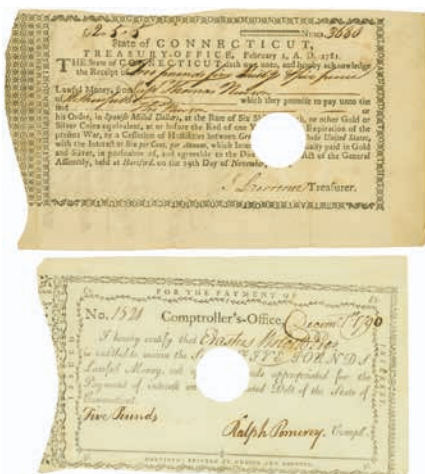 £2-5-5 NUMB. 3630
State of CONNECTICUT,
TREASURY-OFFICE, February 1, A. D. 1781.
THE State of CONNECTICUT, doth owe unto, and hereby acknowledge
the Receipt of Two pounds five Shillgs five pence
Lawful Money, from Thomas
which they promise to pay unto the
his Order, in Spanish Milled Dollars, at the Rate of Six or other Gold or
Silver Coins equivalent, at or before the End of one Expiration of the
present War, or a Cessation of Hostilities between United States,
with the Interest at Six per Cent. per Annum, which paid in Gold
and Silver, in pursuance of, and agreeable to the Act of the General
Assembly, held at Hartford, on the 29th Day of November
Lawrence Treasurer.
FOR THE PAYMENT OF
No. 1521 Comptroller's-Office, 1790
I hereby certify that Erastus
is entitled to receive the FIVE POUNDS
Lawful Money, out of appropriated for the
Payment of interest Debt of the State of
Connecticut.
Five Pounds
Ralph Pomeroy, Compt.
HARTFORD: PRINTED BY HUDSON AND GOODWIN.